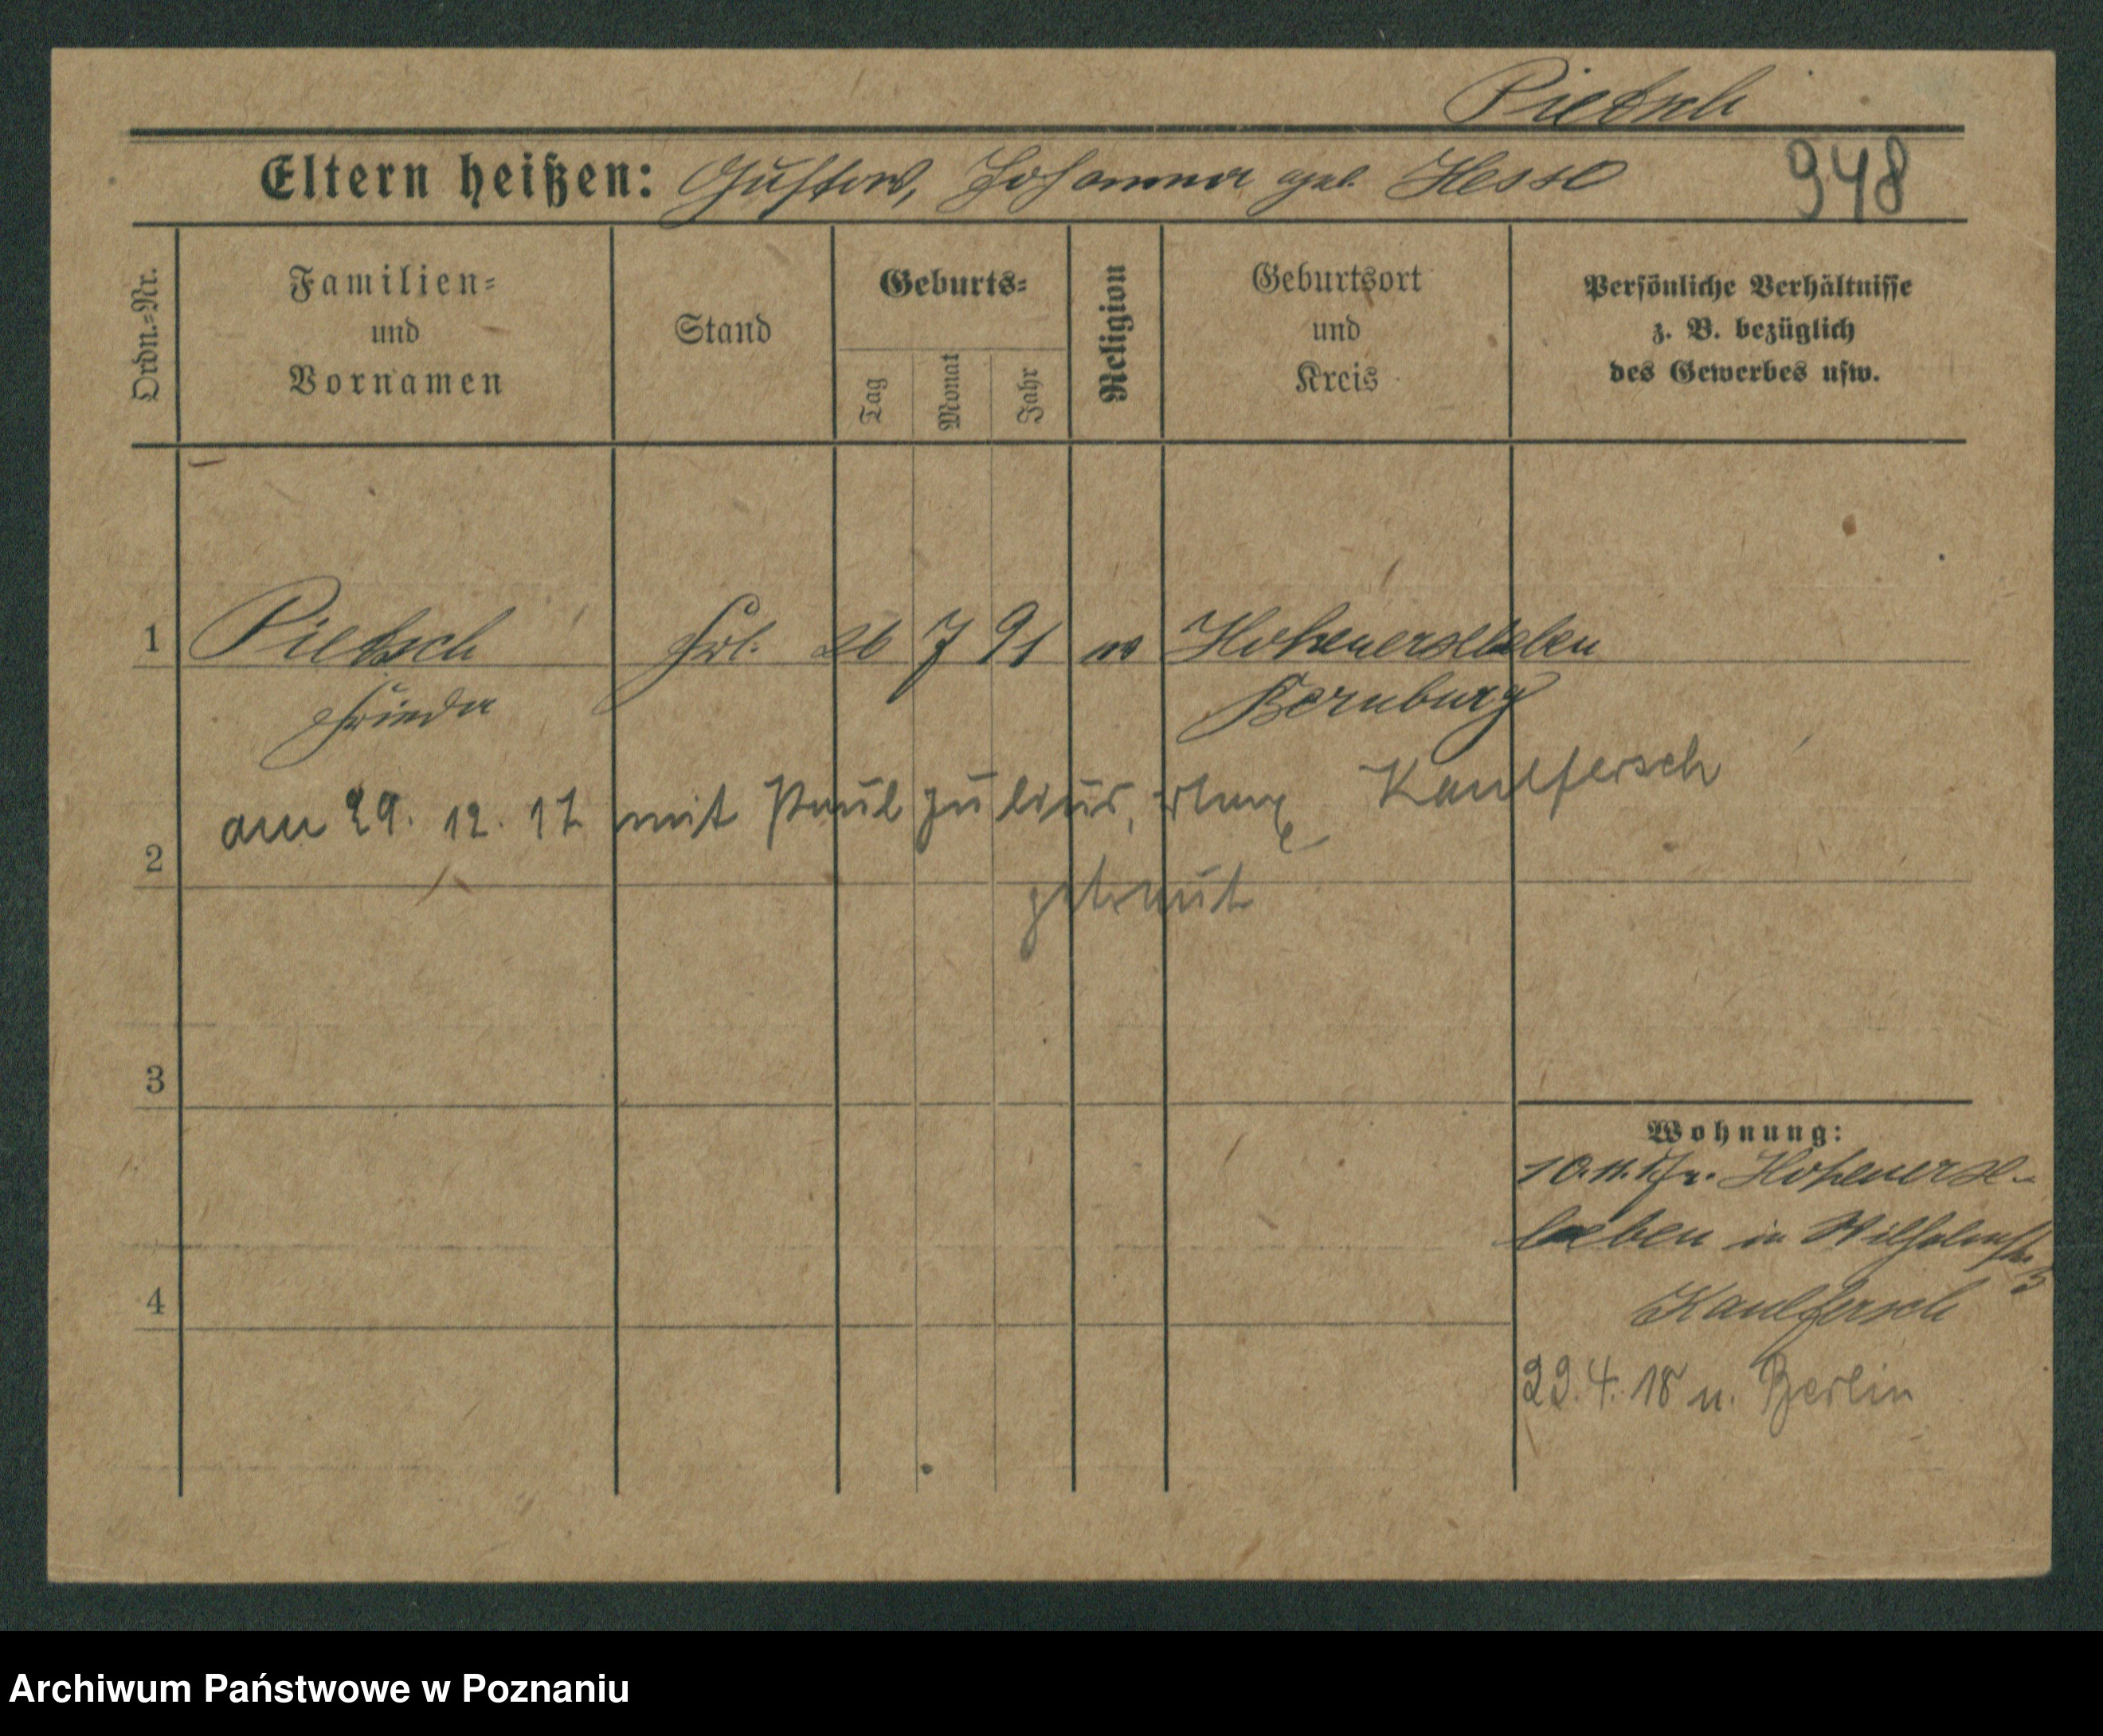 Pietsch
Eltern heißen: Gustav, Johanna geb. Hesse 948
Ordn.=Nr.
Familien=
und
Vornamen
Stand
Geburts=
Tag
Monat
Jahr
Religion
Geburtsort
und
Kreis
Persönliche Verhältnisse
z. B. bezüglich
des Gewerbes usw.
1 Pietsch Frl. 26 7 91 Hohenerxleben
Frieda Bernburg
am 29. 12. 17 mit Paul Julius, Max Kaulfersch
2
getraut
3
Wohnung:
10.11.17 Hohenerx-
leben in Wilhelmstr.
3
4
Kaulfersch
29.4.18 n. Berlin
Archiwum Państwowe w Poznaniu